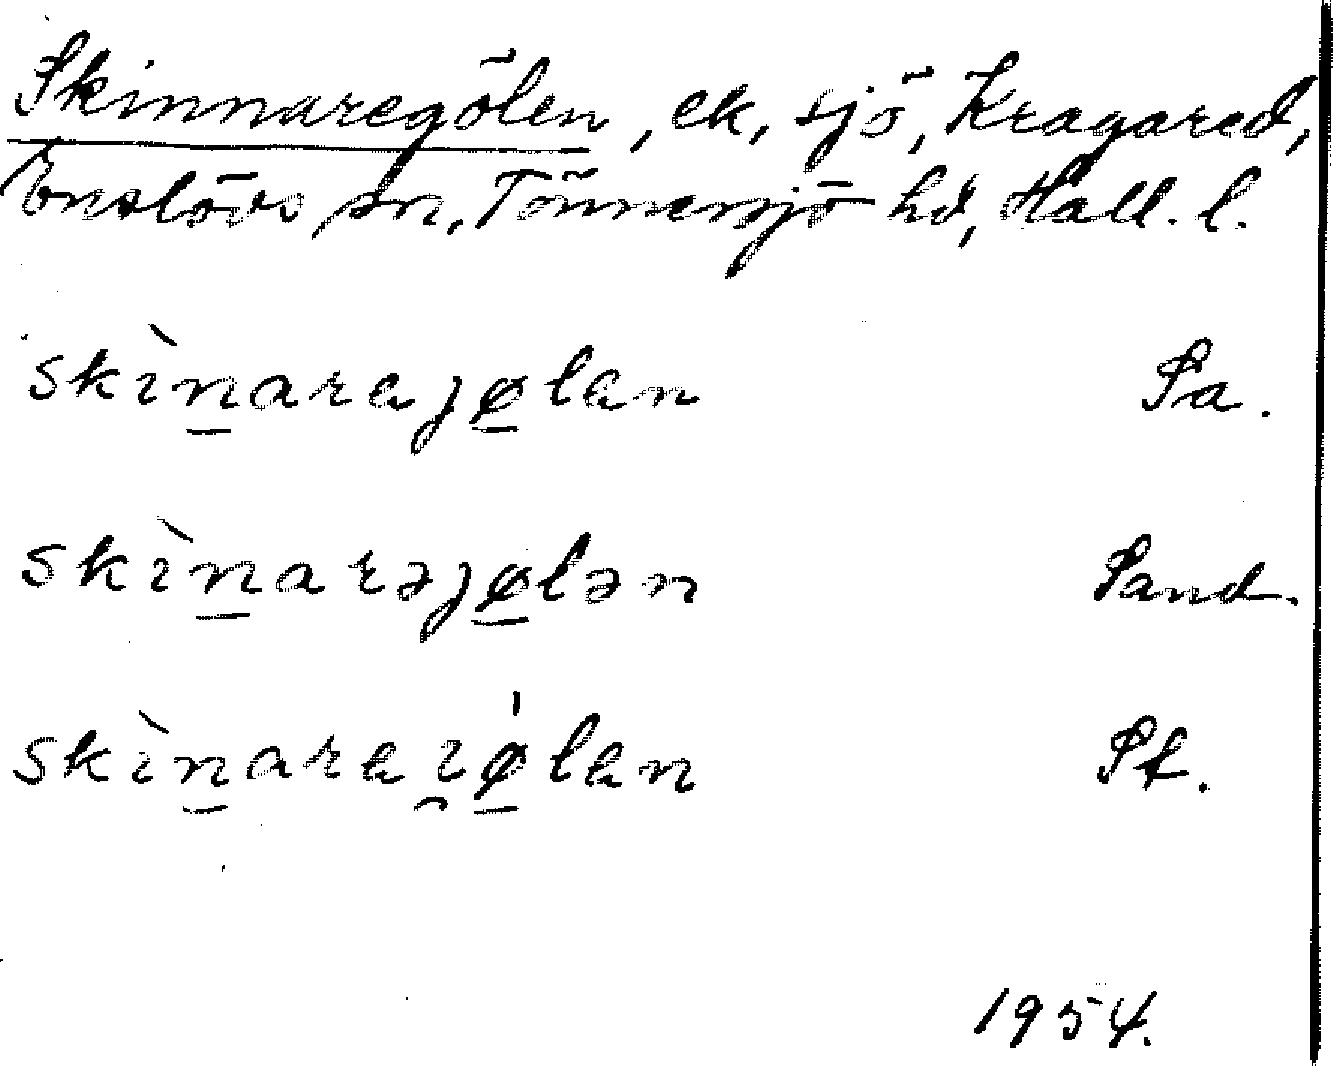 Skinnaregölen, ek, sjö, Kragared,
Enslövs sn, Tönnersjö hd, Hall. l.
skìnarejølen Pa.
skìnarəjølən Sand.
skìnarei̯ǿlen Pf.
1954.